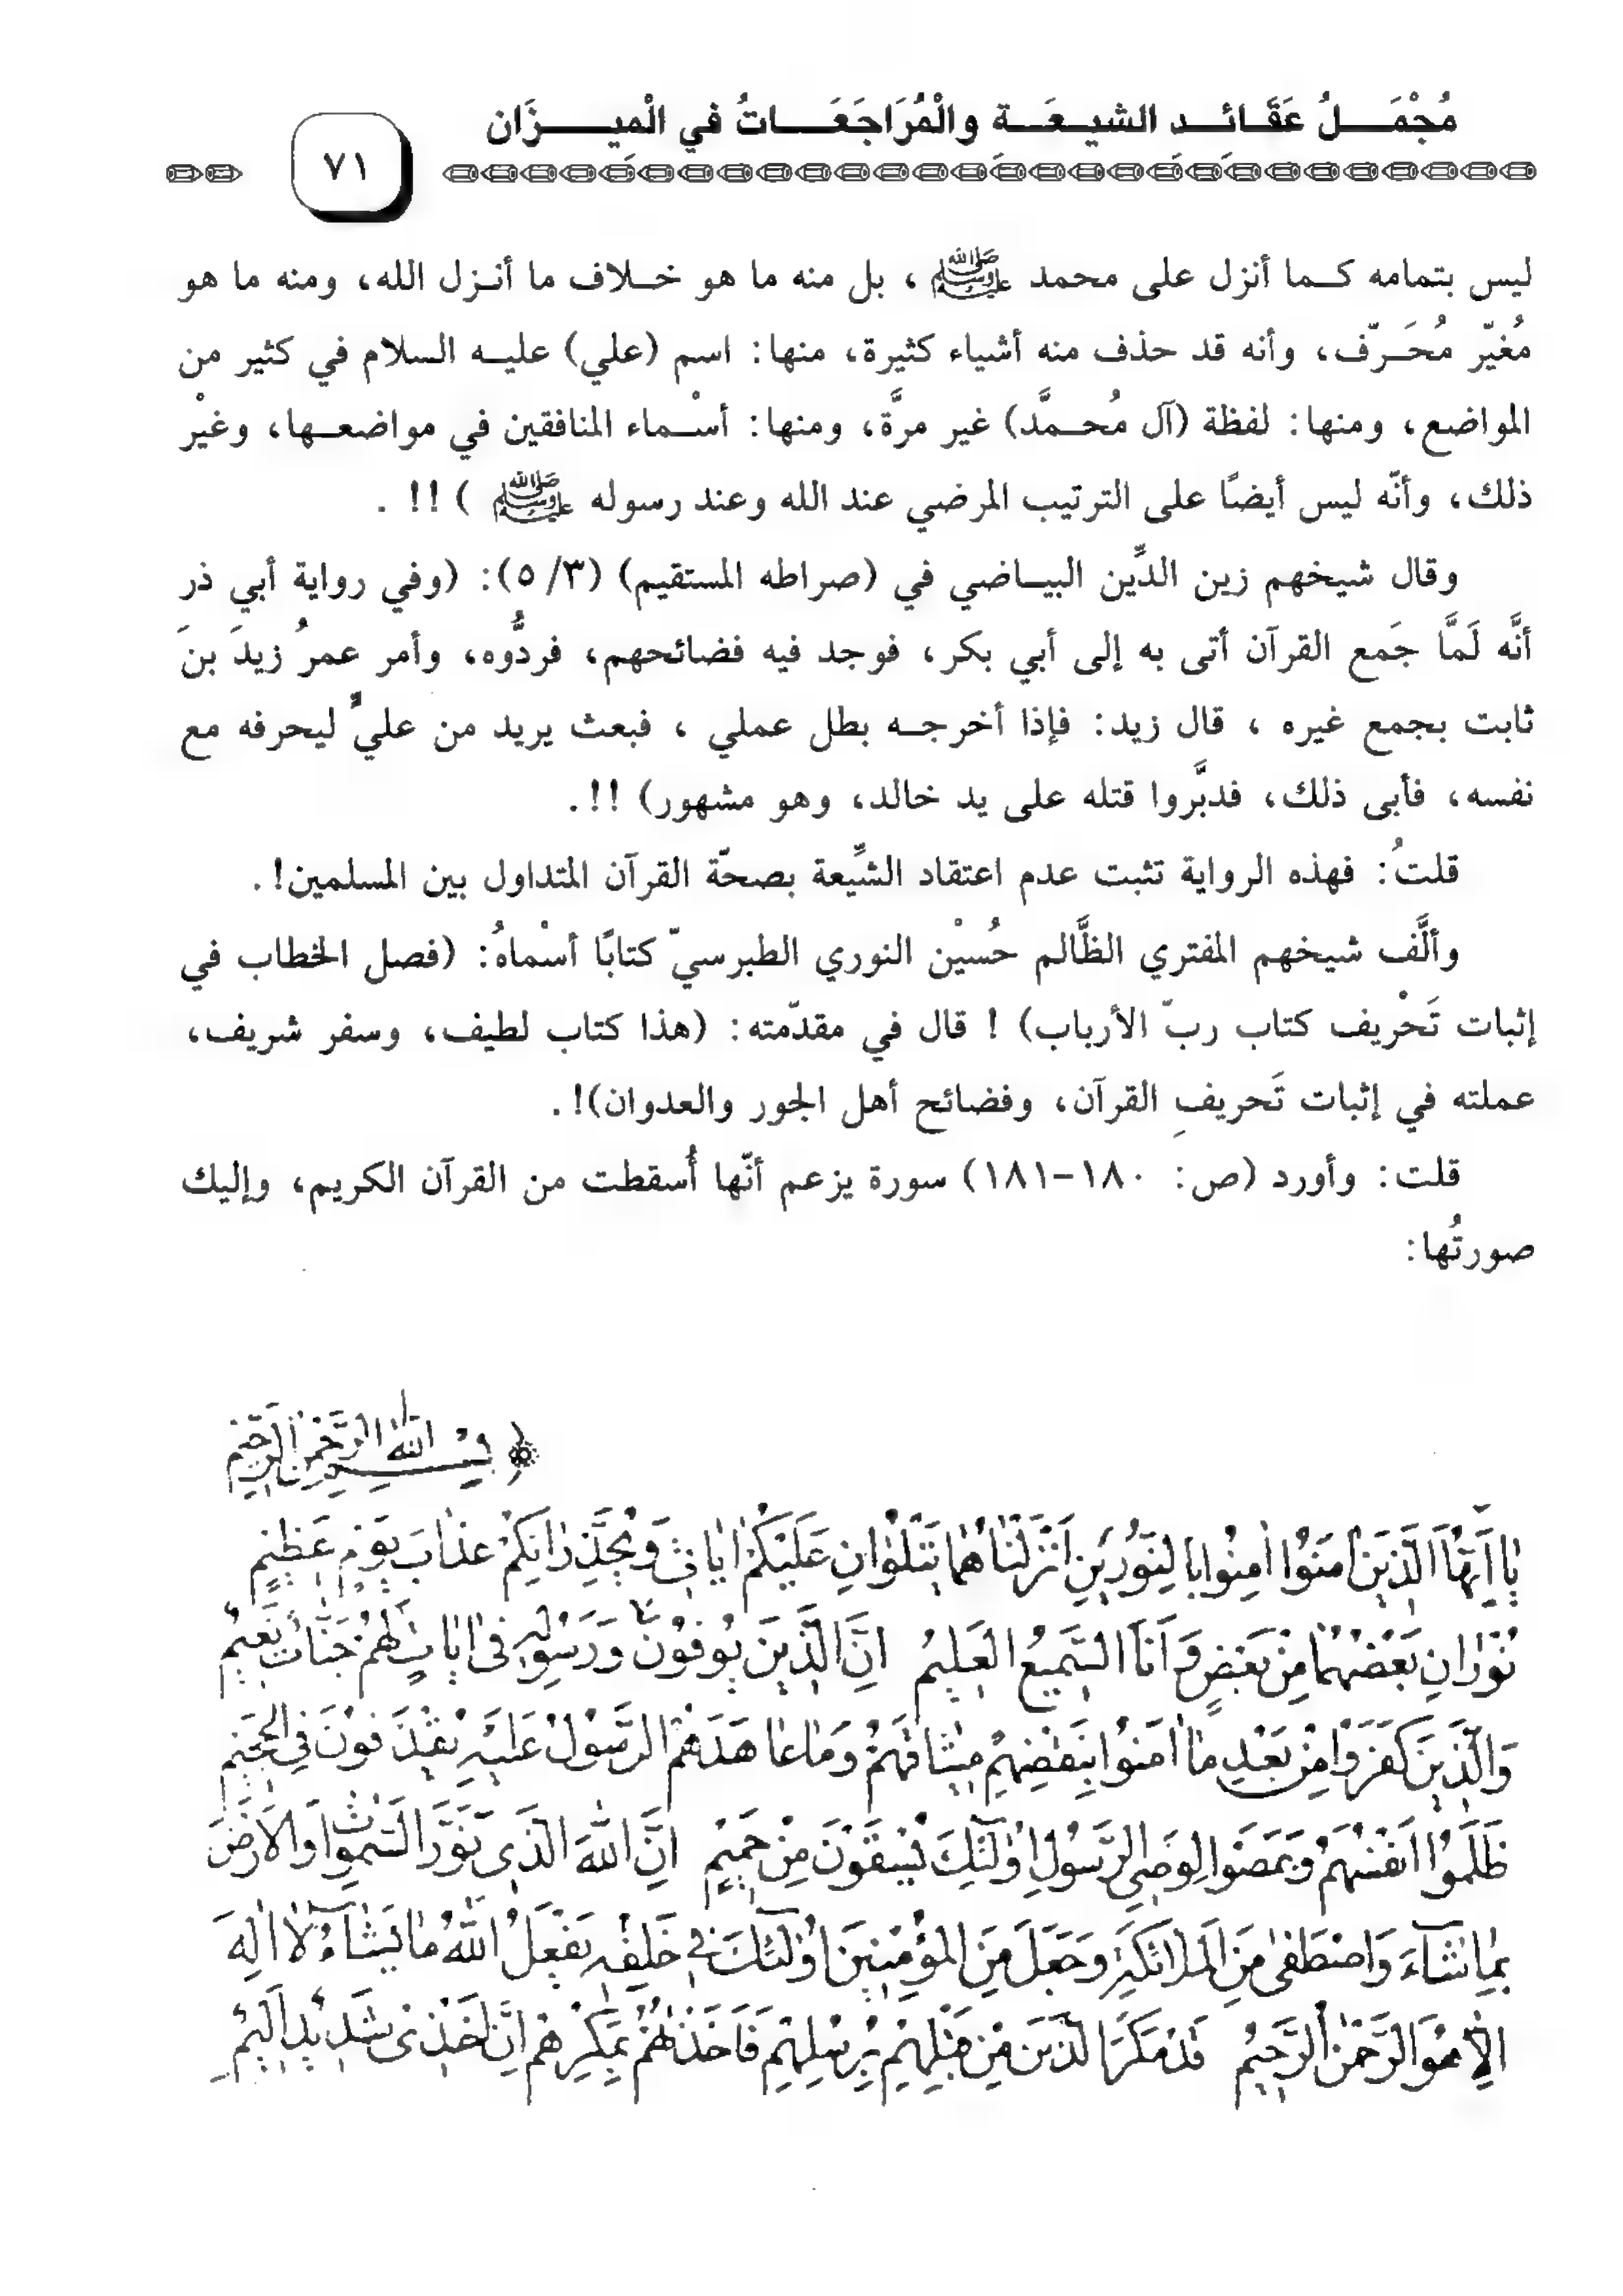 مُجْمَــلُ عَقَـائــد الشيــعَــة والْمُرَاجَعَـــاتُ في الْميــــزَان
٧١
ليس بتمامه كـما أنزل على محمد ﷺ، بل منه ما هو خـلاف ما أنـزل الله، ومنه ما هو
مُغيّر مُحَـرّف، وأنه قد حذف منه أشياء كثيرة، منها: اسم (علي) عليـه السلام في كثير من
المواضع، ومنها: لفظة (آل مُحـمَّد) غير مرَّة، ومنها: أسْـماء المنافقين في مواضعـها، وغيْر
ذلك، وأنّه ليس أيضًا على الترتيب المرضي عند الله وعند رسوله ﷺ ) !! .
وقال شيخهم زين الدِّين البيـاضي في (صراطه المستقيم) (٣/ ٥): (وفي رواية أبي ذر
أنَّه لَمَّا جَمع القرآن أتى به إلى أبي بكر، فوجد فيه فضائحهم، فردُّوه، وأمر عمرُ زيدَ بنَ
ثابت بجمع غيره ، قال زيد: فإذا أخرجـه بطل عملي ، فبعث يريد من عليٍّ ليحرفه مع
نفسه، فأبى ذلك، فدبَّروا قتله على يد خالد، وهو مشهور) !!.
قلتُ: فهذه الرواية تثبت عدم اعتقاد الشِّيعة بصحّة القرآن المتداول بين المسلمين! .
وألَّف شيخهم المفتري الظَّالم حُسيْن النوري الطبرسيّ كتابًا أسْماهُ: (فصل الخطاب في
إثبات تَحْريف كتاب ربّ الأرباب) ! قال في مقدّمته: (هذا كتاب لطيف، وسفر شريف،
عملته في إثبات تَحريفِ القرآن، وفضائح أهل الجور والعدوان)! .
قلت: وأورد (ص: ١٨٠-١٨١) سورة يزعم أنّها أُسقطت من القرآن الكريم، وإليك
صورتُها:
بِسْمِ اللهِ الرَّحْمٰنِ الرَّحِيمِ
يٰا اَيُّهَا الَّذِينَ اٰمَنُوا اٰمِنُوا بِالنُّورَيْنِ اَنْزَلْنَاهُمٰا يَتْلُوٰانِ عَلَيْكُمْ اٰيٰاتِي وَيُحَذِّرٰانِكُمْ عَذٰابَ يَوْمٍ عَظِيْمٍ
نُوْرٰانِ بَعْضُهُمٰا مِنْ بَعْضٍ وَ اَنَا السَّمِيعُ الْعَلِيْمُ اِنَّ الَّذِيْنَ يُوفُوْنَ وَرَسُوْلِهِ فِى اٰيٰاتٍ لَهُمْ جَنّٰاتُ نَعِيْمٍ
وَالَّذِيْنَ كَفَرُوْا مِنْ بَعْدِ مٰا اٰمَنُوْا بِنَقْضِهِمْ مِيْثٰاقَهُمْ وَمٰا عٰاهَدَهُمُ الرَّسُوْلُ عَلَيْهِ يُقْذَفُوْنَ فِي الْجَحِيْمِ
ظَلَمُوْا اَنْفُسَهُمْ وَعَصَوْا لِوَصِىِّ الرَّسُوْلِ اُوْلٰئِكَ يُسْقَوْنَ مِنْ حَمِيْمٍ اِنَّ اللّٰهَ الَّذِى نَوَّرَ السَّمٰوٰاتِ وَالْاَرْضَ
بِمٰا شَاۤءَ وَاصْطَفٰى مِنَ الْمَلاٰئِكَةِ وَجَعَلَ مِنَ الْمُؤْمِنِيْنَ اُوْلٰئِكَ فِى خَلْقِهِ يَفْعَلُ اللّٰهُ مٰا يَشٰاۤءُ لاٰ اِلٰهَ
اِلاّٰ هُوَ الرَّحْمٰنُ الرَّحِيْمُ قَدْ مَكَرَ الَّذِيْنَ مِنْ قَبْلِهِمْ بِرُسُلِهِمْ فَاَخَذْتُهُمْ بِمَكْرِهِمْ اِنَّ اَخْذِىْ شَدِيْدٌ اَلِيْمٌ